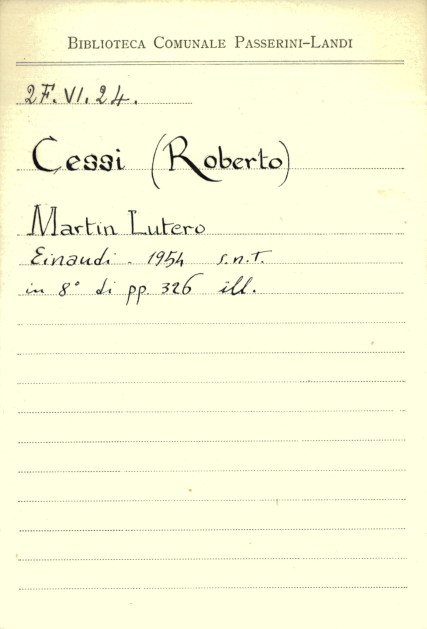 BIBLIOTECA COMUNALE PASSERINI-LANDI
2F. VI. 24.
Cessi (Roberto)
Martin Lutero
Einaudi - 1954 s.n.T.
in 8° di pp. 326 ill.